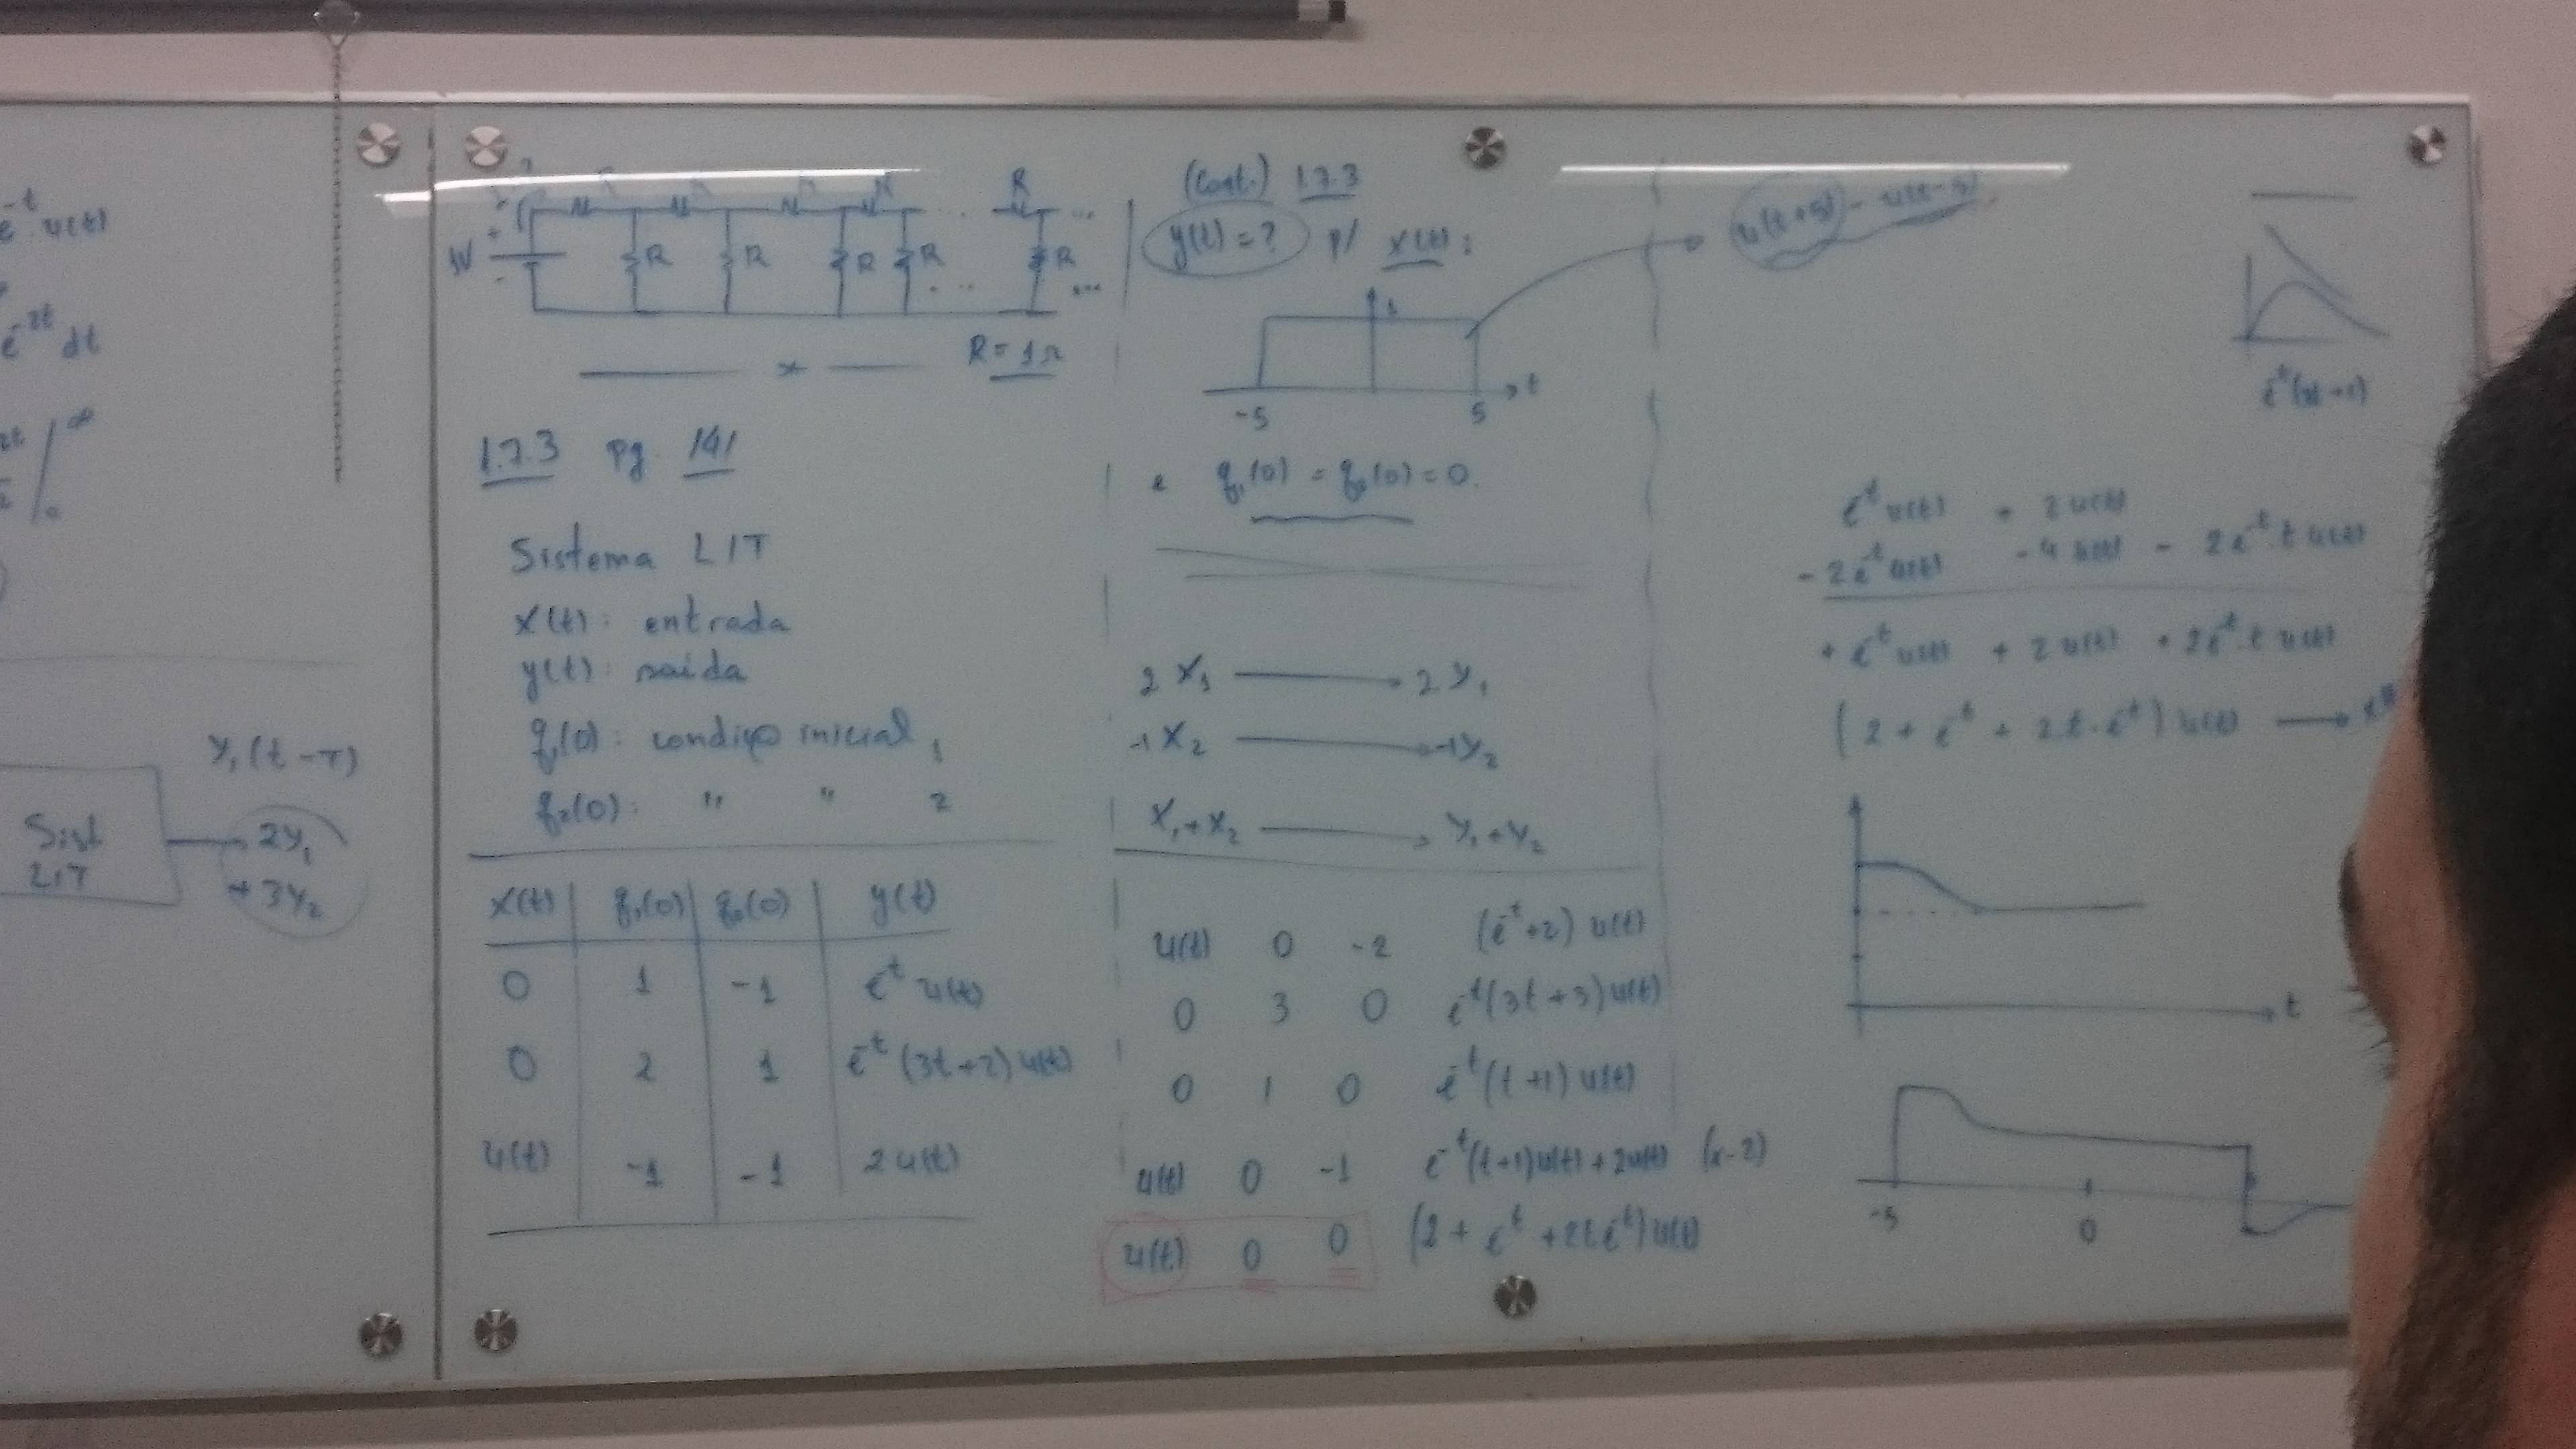 e^-t u(t)
e^-2t dt
y₁(t-T)
Sist
LIT
2y₁
+ 3y₂
1V
+
-
R R R R R
R = 1Ω
x
1.7.3 pg. 141
Sistema LIT
x(t): entrada
y(t): saída
q₁(0): condição inicial 1
q₂(0): " " 2
x(t) q₁(0) q₂(0) y(t)
0 1 -1 e^-t u(t)
0 2 1 e^-t (3t+2) u(t)
u(t) -1 -1 2 u(t)
(Cont.) 1.7.3
y(t) = ? p/ x(t):
1
t
-5 5
e q₁(0) = q₂(0) = 0.
2 X₁ 2 y₁
-1 X₂ -1 y₂
X₁ + X₂ y₁ + y₂
u(t) 0 -2 (e^-t + 2) u(t)
0 3 0 e^-t (3t + 3) u(t)
0 1 0 e^-t (t + 1) u(t)
u(t) 0 -1 e^-t (t+1) u(t) + 2u(t) (x-2)
u(t) 0 0 (2 + e^-t + 2t.e^-t) u(t)
u(t+5) - u(t-5)
e^-t u(t) + 2 u(t)
- 2e^-t u(t) - 4 u(t) - 2e^-t.t u(t)
+ e^-t u(t) + 2 u(t) + 2e^-t.t u(t)
(2 + e^-t + 2.t.e^-t) u(t)
t
-5 0